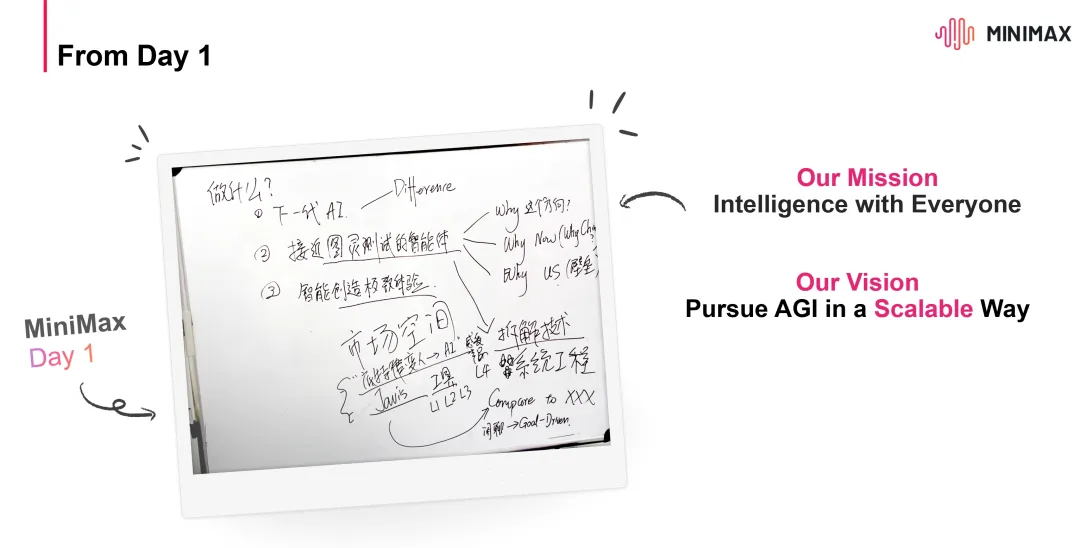 From Day 1
MINIMAX
做什么?
① 下一代 AI.
Difference
② 接近图灵测试的智能体
Why 这个方向?
Why Now (Why Cha
Why US (壁垒)
③ 智能创造极致体验.
市场空间
拆解技术
系统工程
→ AI
L4
Javis 工具
L1 L2 L3
Compare to XXX
闲聊 → Goal-Driven.
MiniMax
Day 1
Our Mission
Intelligence with Everyone
Our Vision
Pursue AGI in a Scalable Way